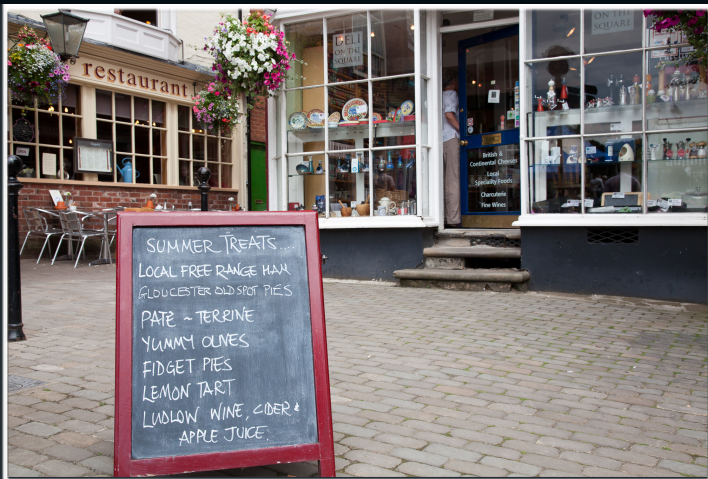 restaurant
DELI
ON THE
SQUARE
DELI
ON THE
SQUARE
British &
Continental Cheeses
Local
Speciality Foods
Charcuterie
Fine Wines
SUMMER TREATS....
LOCAL FREE RANGE HAM
GLOUCESTER OLD SPOT PIES
PATE ~ TERRINE
YUMMY OLIVES
FIDGET PIES
LEMON TART
LUDLOW WINE, CIDER &
APPLE JUICE.